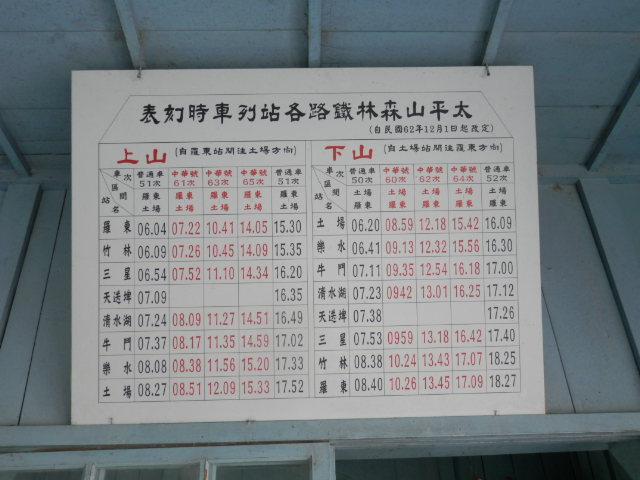 太平山森林鐵路各站列車時刻表
(自民國62年12月1日起改定)
上山 (自羅東站開往土場方向)
車次 區間 站名 普通車 中華號 中華號 中華號 普通車
51次 61次 63次 65次 51次
羅東 羅東 羅東 羅東 羅東
土場 土場 土場 土場 土場
羅東 06.04 07.22 10.41 14.05 15.30
竹林 06.09 07.26 10.45 14.09 15.35
三星 06.54 07.52 11.10 14.34 16.20
天送埤 07.09 16.35
清水湖 07.24 08.09 11.27 14.51 16.49
牛門 07.37 08.17 11.35 14.59 17.02
樂水 08.08 08.38 11.56 15.20 17.33
土場 08.27 08.51 12.09 15.33 17.52
下山 (自土場站開往羅東方向)
車次 區間 站名 普通車 中華號 中華號 中華號 普通車
50次 60次 62次 64次 52次
土場 羅東 羅東 羅東 羅東
羅東 土場 土場 土場 土場
土場 06.20 08.59 12.18 15.42 16.09
樂水 06.41 09.13 12.32 15.56 16.30
牛門 07.11 09.35 12.54 16.18 17.00
清水湖 07.23 0942 13.01 16.25 17.12
天送埤 07.38 17.26
三星 07.53 0959 13.18 16.42 17.40
竹林 08.38 10.24 13.43 17.07 18.25
羅東 08.40 10.26 13.45 17.09 18.27